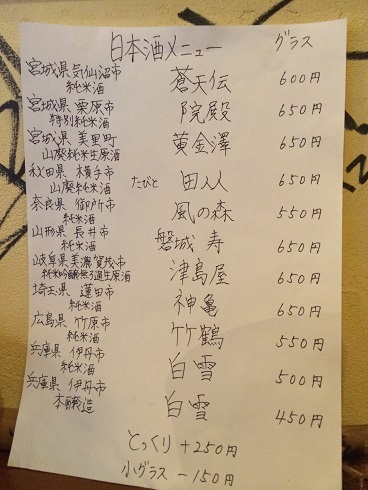 日本酒メニュー グラス
宮城県気仙沼市 蒼天伝 600円
純米酒
宮城県 栗原市 院殿 650円
特別純米酒
宮城県 美里町 黄金澤 650円
山廃純米生原酒
秋田県 横手市 たびと 田人 650円
山廃純米酒
奈良県 御所市 風の森 550円
純米酒
山形県 長井市 磐城 寿 650円
純米酒
岐阜県美濃賀茂市 津島屋 650円
純米吟醸無ろ過生原酒
埼玉県 蓮田市 神亀 650円
純米酒
広島県 竹原市 竹鶴 550円
純米酒
兵庫県 伊丹市 白雪 500円
純米酒
兵庫県 伊丹市 白雪 450円
本醸造
とっくり +250円
小グラス -150円